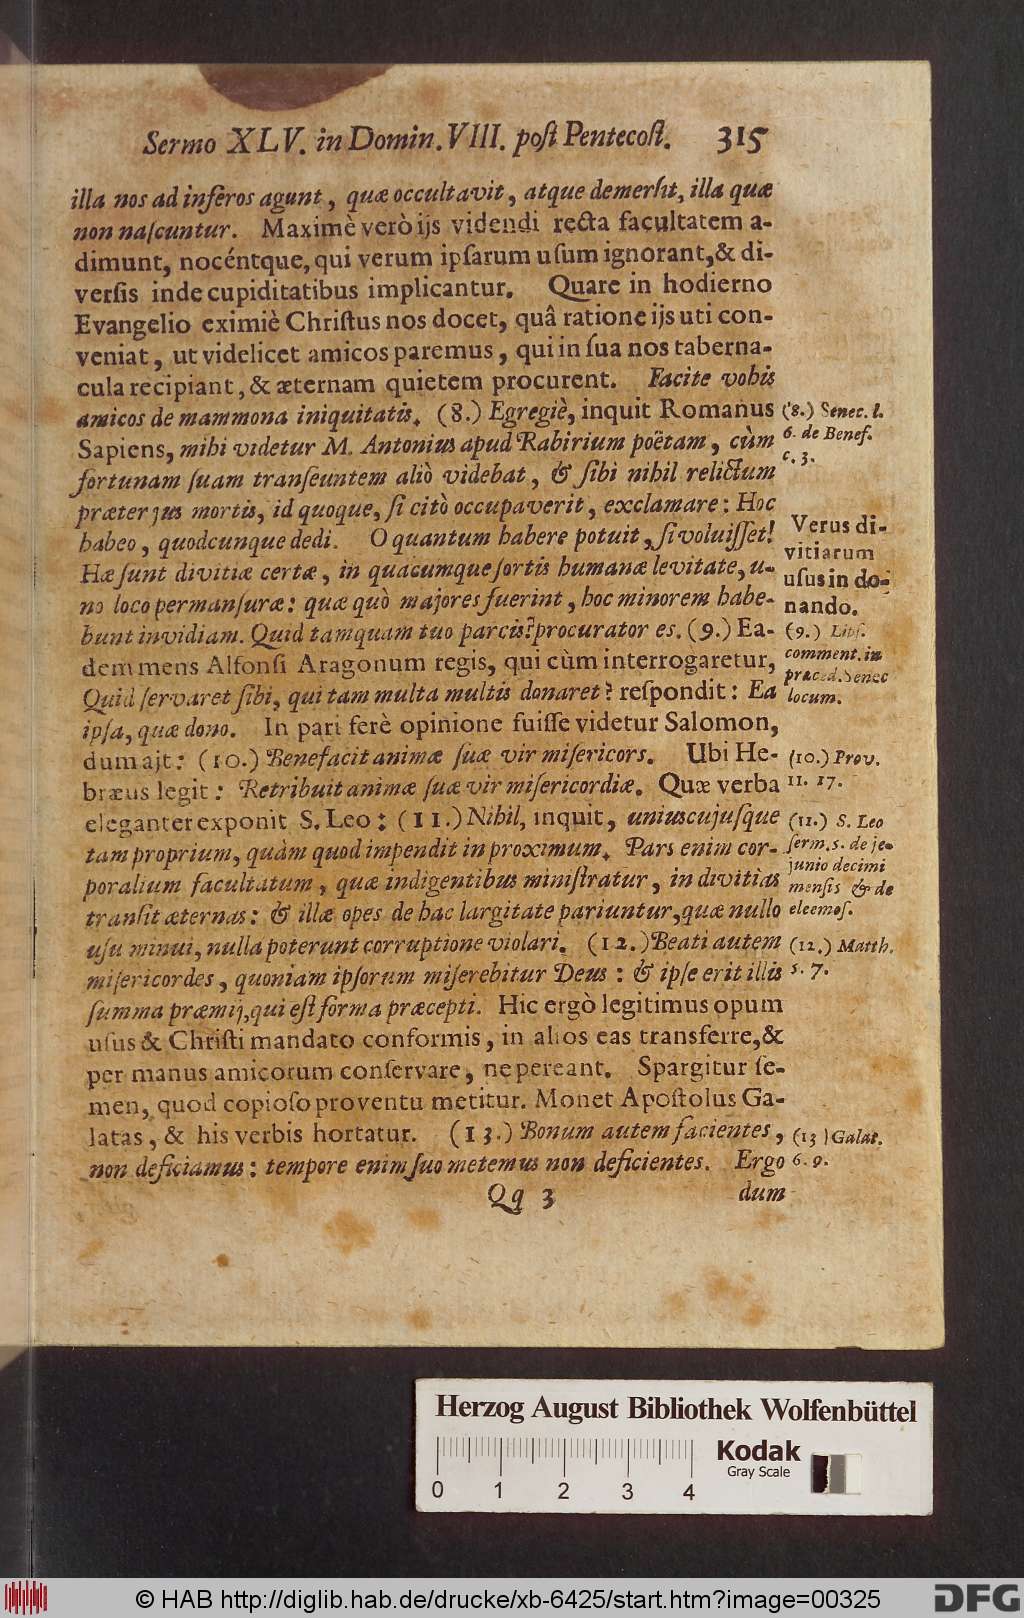 Sermo XLV. in Domin. VIII. poſt Pentecoſt. 315
illa nos ad inferos agunt, quæ occultavit, atque demerſit, illa quæ
non naſcuntur. Maximè verò ijs videndi recta facultatem a-
dimunt, nocéntque, qui verum ipſarum uſum ignorant, & di-
verſis inde cupiditatibus implicantur. Quare in hodierno
Evangelio eximiè Chriſtus nos docet, quâ ratione ijs uti con-
veniat, ut videlicet amicos paremus, qui in ſua nos taberna-
cula recipiant, & æternam quietem procurent. Facite vobis
amicos de mammona iniquitatis. (8.) Egregiè, inquit Romanus
Sapiens, mihi videtur M. Antonius apud Rabirium poëtam, cùm
fortunam ſuam tranſeuntem aliò videbat, & ſibi nihil relictum
præter jus mortis, id quoque, ſi citò occupaverit, exclamare: Hoc
habeo, quodcunque dedi. O quantum habere potuit, ſi voluiſſet!
Hæ ſunt divitiæ certæ, in quacumque ſortis humanæ levitate, u-
no loco permanſuræ: quæ quò majores fuerint, hoc minorem habe-
bunt invidiam. Quid tamquam tuo parcis? procurator es. (9.) Ea-
dem mens Alfonſi Aragonum regis, qui cùm interrogaretur,
Quid ſervaret ſibi, qui tam multa multis donaret? reſpondit: Ea
ipſa, quæ dono. In pari ferè opinione fuiſſe videtur Salomon,
dum ajt: (10.) Benefacit animæ ſuæ vir miſericors. Ubi He-
bræus legit: Retribuit animæ ſuæ vir miſericordiæ. Quæ verba
eleganter exponit S. Leo: (11.) Nihil, inquit, uniuscujuſque
tam proprium, quàm quod impendit in proximum. Pars enim cor-
poralium facultatum, quæ indigentibus miniſtratur, in divitias
tranſit æternas: & illæ opes de hac largitate pariuntur, quæ nullo
uſu minui, nulla poterunt corruptione violari. (12.) Beati autem
miſericordes, quoniam ipſorum miſerebitur Deus: & ipſe erit illis
ſumma præmij, qui eſt forma præcepti. Hic ergò legitimus opum
uſus & Chriſti mandato conformis, in alios eas transferre, &
per manus amicorum conſervare, ne pereant. Spargitur ſe-
men, quod copioſo proventu metitur. Monet Apoſtolus Ga-
latas, & his verbis hortatur. (13.) Bonum autem facientes,
non deficiamus: tempore enim ſuo metemus non deficientes. Ergo
Qq 3 dum
(8.) Senec. l.
6. de Benef.
c. 3.
Verus di-
vitiarum
uſus in do-
nando.
(9.) Lipſ.
comment. in
præced. Senec
locum.
(10.) Prov.
11. 17.
(11.) S. Leo
ſerm. 5. de je-
junio decimi
menſis & de
eleemoſ.
(12.) Matth.
5. 7.
(13) Galat.
6. 9.
Herzog August Bibliothek Wolfenbüttel
0 1 2 3 4
Kodak
Gray Scale
© HAB http://diglib.hab.de/drucke/xb-6425/start.htm?image=00325
DFG